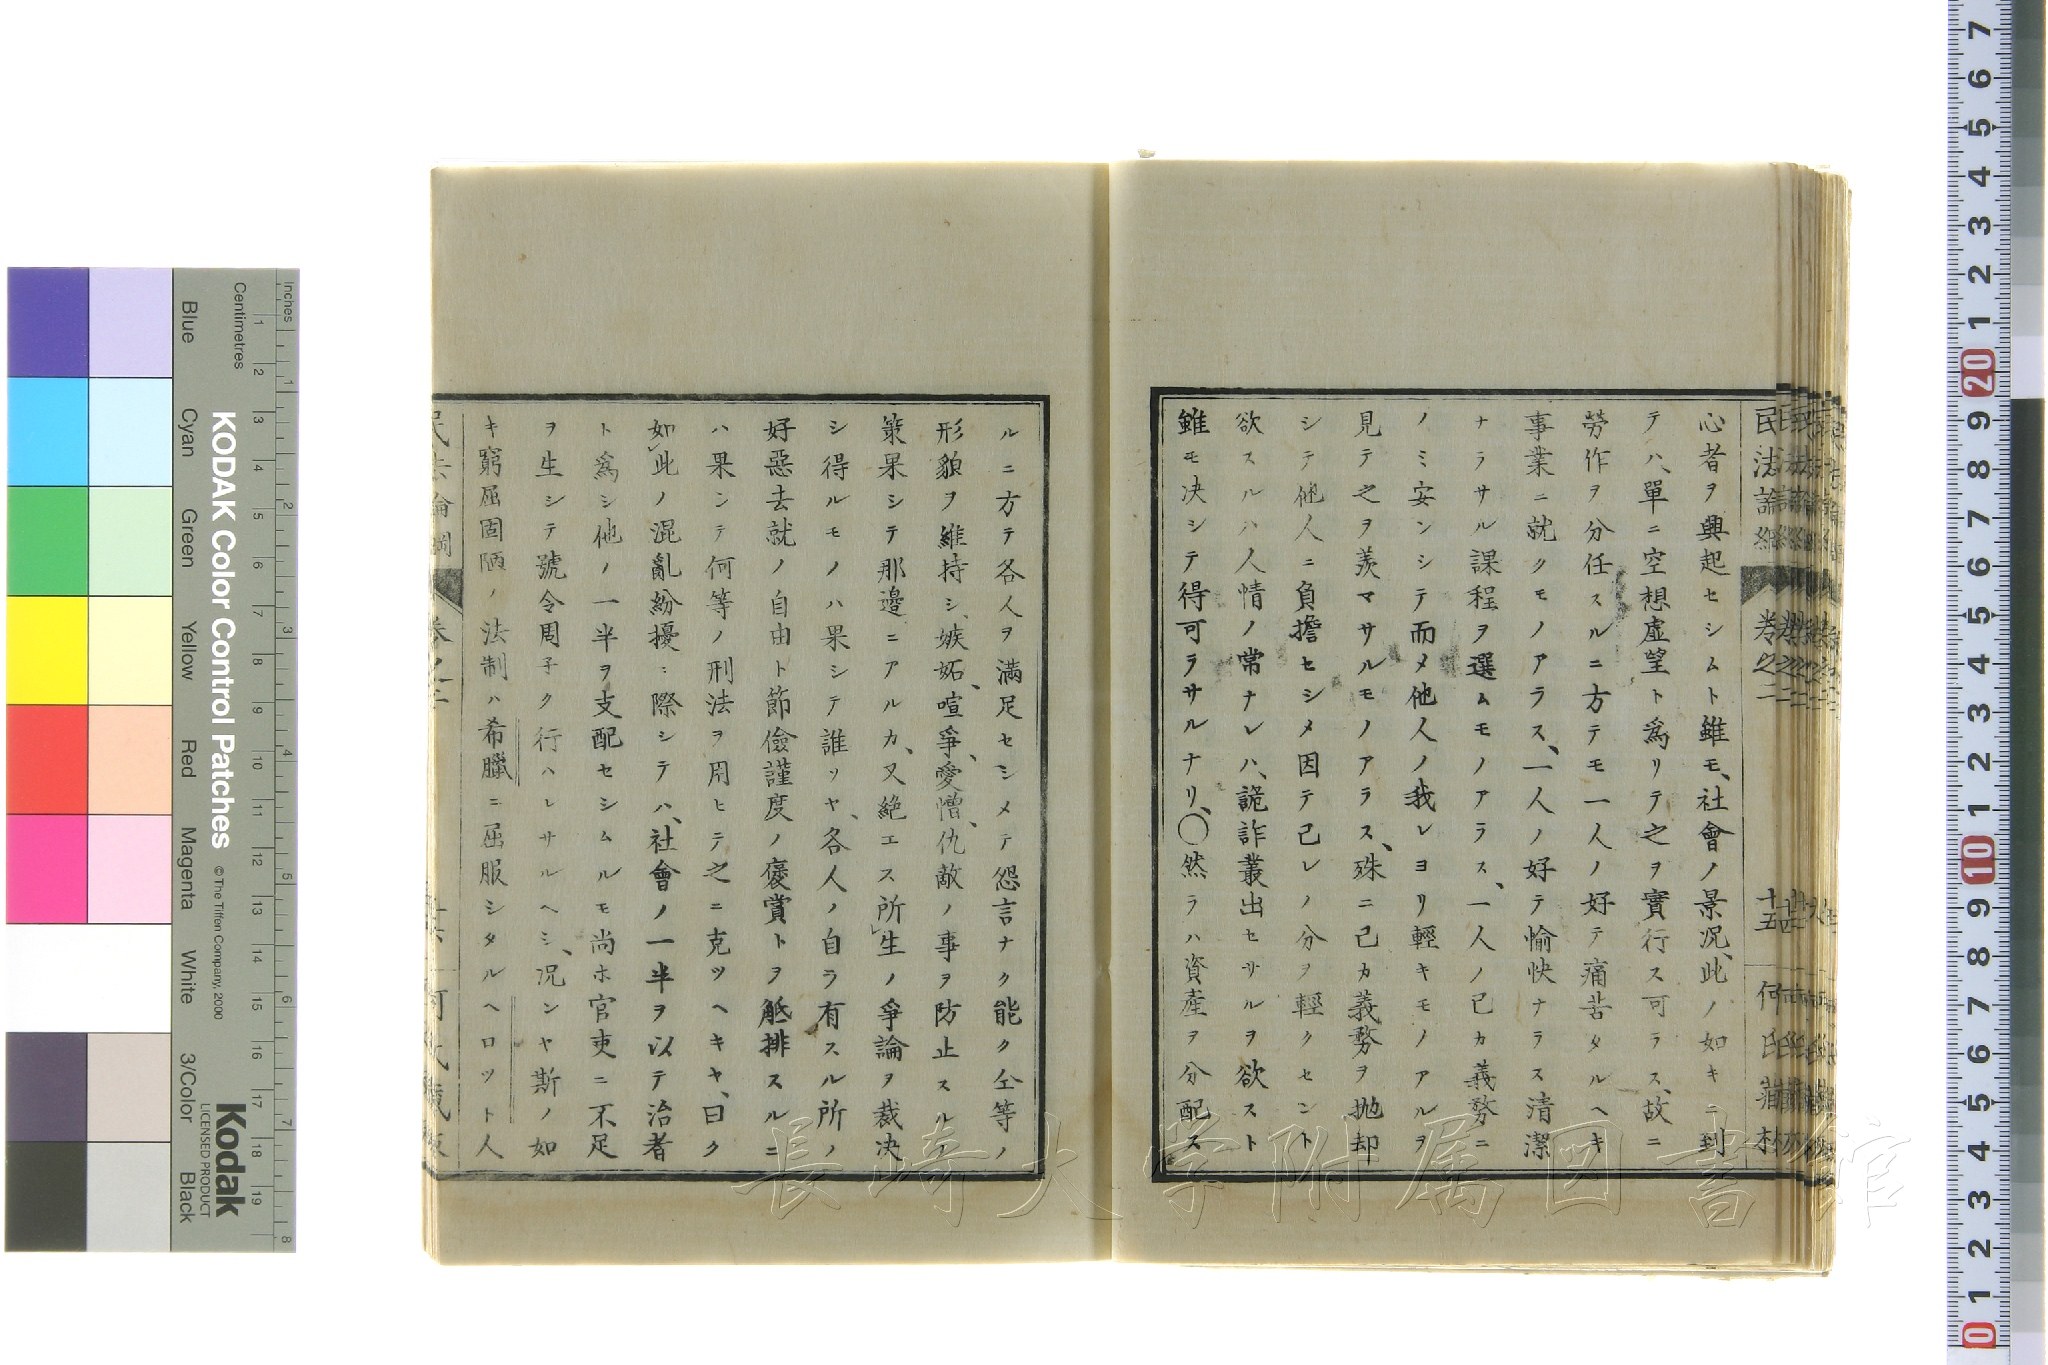 心者ヲ興起セシムト雖モ、社會ノ景况、此ノ如キニ到
テハ、單ニ空想虛望ト爲リテ之ヲ實行ス可ラス、故ニ
勞作ヲ分任スルニ方テモ一人ノ好テ痛苦タルヘキ
事業ニ就クモノアラス、一人ノ好テ愉快ナラス清潔
ナラサル課程ヲ選ムモノアラス、一人ノ己カ義務ニ
ノミ安ンシテ而メ他人ノ我レヨリ輕キモノアルヲ
見テ之ヲ羨マサルモノアラス、殊ニ己カ義務ヲ拋却
シテ他人ニ負擔セシメ因テ己レノ分ヲ輕クセント
欲スルハ人情ノ常ナレハ、詭詐叢出セサルヲ欲スト
雖モ决シテ得可ラサルナリ、〇然ラハ資產ヲ分配ス
民法論綱 卷之二 十五 何氏藏板
ルニ方テ各人ヲ滿足セシメテ怨言ナク能ク仝等ノ
形貌ヲ維持シ、嫉妬、喧爭、愛憎、仇敵ノ事ヲ防止スルノ
策果シテ那邊ニアルカ、又絶エス所生ノ爭論ヲ裁决
シ得ルモノハ果シテ誰ソヤ、各人ノ自ラ有スル所ノ
好惡去就ノ自由ト節儉謹度ノ褒賞トヲ觝排スルニ
ハ果シテ何等ノ刑法ヲ用ヒテ之ニ克ツヘキヤ、曰ク
如此ノ混亂紛擾ニ際シテハ、社會ノ一半ヲ以テ治者
ト爲シ他ノ一半ヲ支配セシムルモ尚ホ官吏ニ不足
ヲ生シテ號令周子ク行ハレサルヘシ、况ンヤ斯ノ如
キ窮屈固陋ノ法制ハ希臘ニ屈服シタルヘロット人
民法論綱 卷之二 何氏藏板
長崎大学附属図書館
KODAK Color Control Patches
© The Tiffen Company, 2000
Kodak
LICENSED PRODUCT
Inches
Centimetres
Blue
Cyan
Green
Yellow
Red
Magenta
White
3/Color
Black